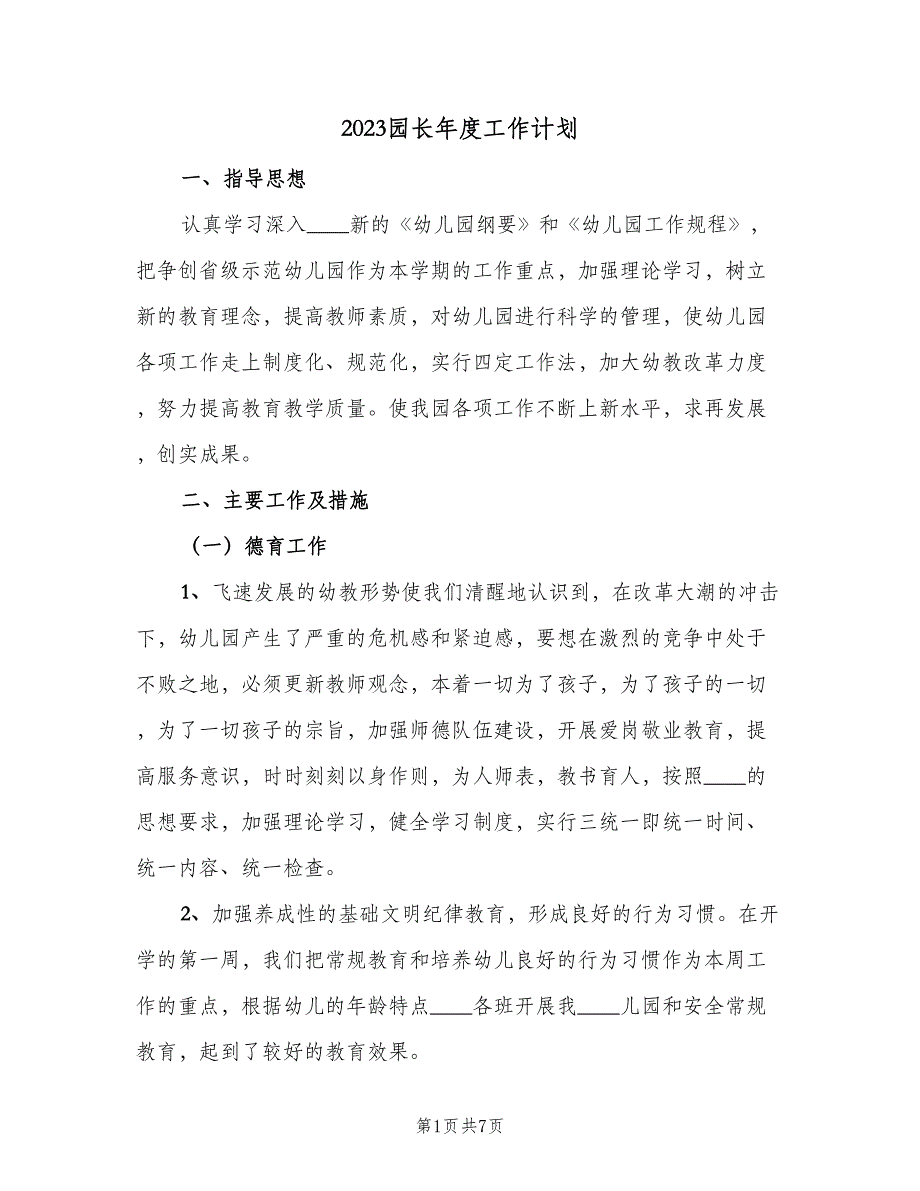 2023园长年度工作计划
一、指导思想
认真学习深入____新的《幼儿园纲要》和《幼儿园工作规程》，
把争创省级示范幼儿园作为本学期的工作重点，加强理论学习，树立
新的教育理念，提高教师素质，对幼儿园进行科学的管理，使幼儿园
各项工作走上制度化、规范化，实行四定工作法，加大幼教改革力度
，努力提高教育教学质量。使我园各项工作不断上新水平，求再发展
，创实成果。
二、主要工作及措施
（一）德育工作
1、飞速发展的幼教形势使我们清醒地认识到，在改革大潮的冲击
下，幼儿园产生了严重的危机感和紧迫感，要想在激烈的竞争中处于
不败之地，必须更新教师观念，本着一切为了孩子，为了孩子的一切
，为了一切孩子的宗旨，加强师德队伍建设，开展爱岗敬业教育，提
高服务意识，时时刻刻以身作则，为人师表，教书育人，按照____的
思想要求，加强理论学习，健全学习制度，实行三统一即统一时间、
统一内容、统一检查。
2、加强养成性的基础文明纪律教育，形成良好的行为习惯。在开
学的第一周，我们把常规教育和培养幼儿良好的行为习惯作为本周工
作的重点，根据幼儿的年龄特点____各班开展我____儿园和安全常规
教育，起到了较好的教育效果。
第1页共7页